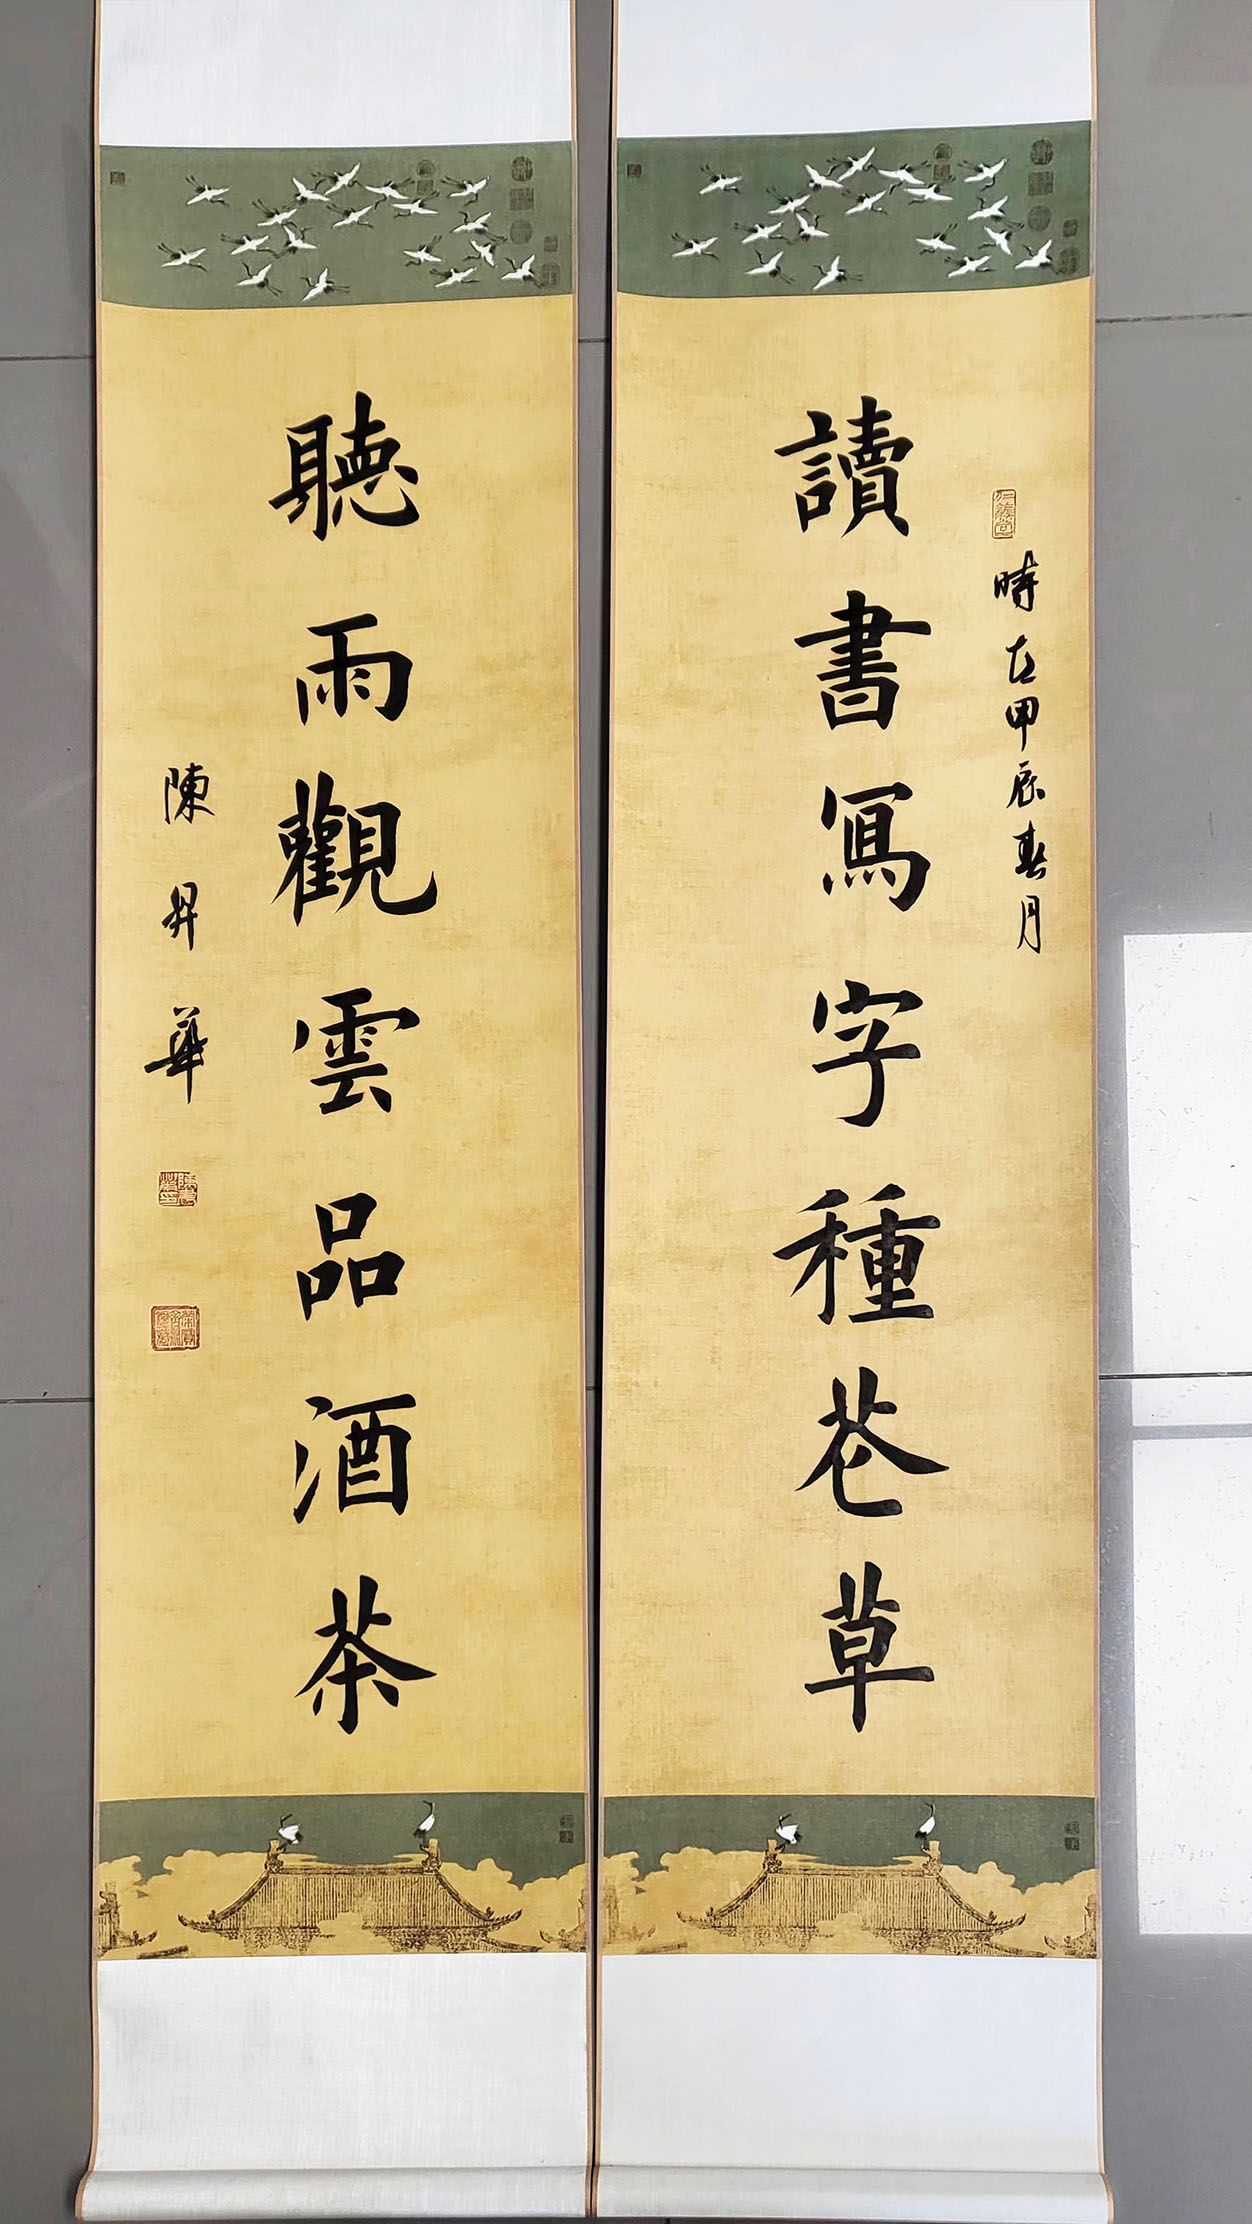 讀書寫字種花草
時在甲辰春月
聽雨觀雲品酒茶
陳昇華